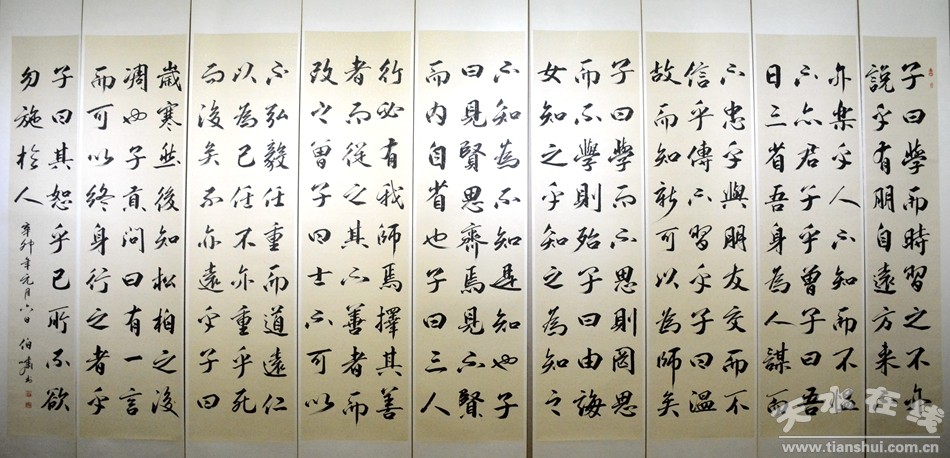 子曰學而時習之不亦
說乎有朋自遠方來
亦樂乎人不知而不慍
不亦君子乎曾子曰吾
日三省吾身為人謀而
不忠乎與朋友交而不
信乎傳不習乎子曰溫
故而知新可以為師矣
子曰學而不思則罔思
而不學則殆子曰由誨
女知之乎知之為知之
不知為不知是知也子
曰見賢思齊焉見不賢
而內自省也子曰三人
行必有我師焉擇其善
者而從之其不善者而
改之曾子曰士不可以
不弘毅任重而道遠仁
以為己任不亦重乎死
而後矣不亦遠乎子曰
歲寒然後知松柏之後
凋也子貢問曰有一言
而可以終身行之者乎
子曰其恕乎己所不欲
勿施於人
辛卯年元月六日 伯 書
天水在线
www.tianshui.com.cn